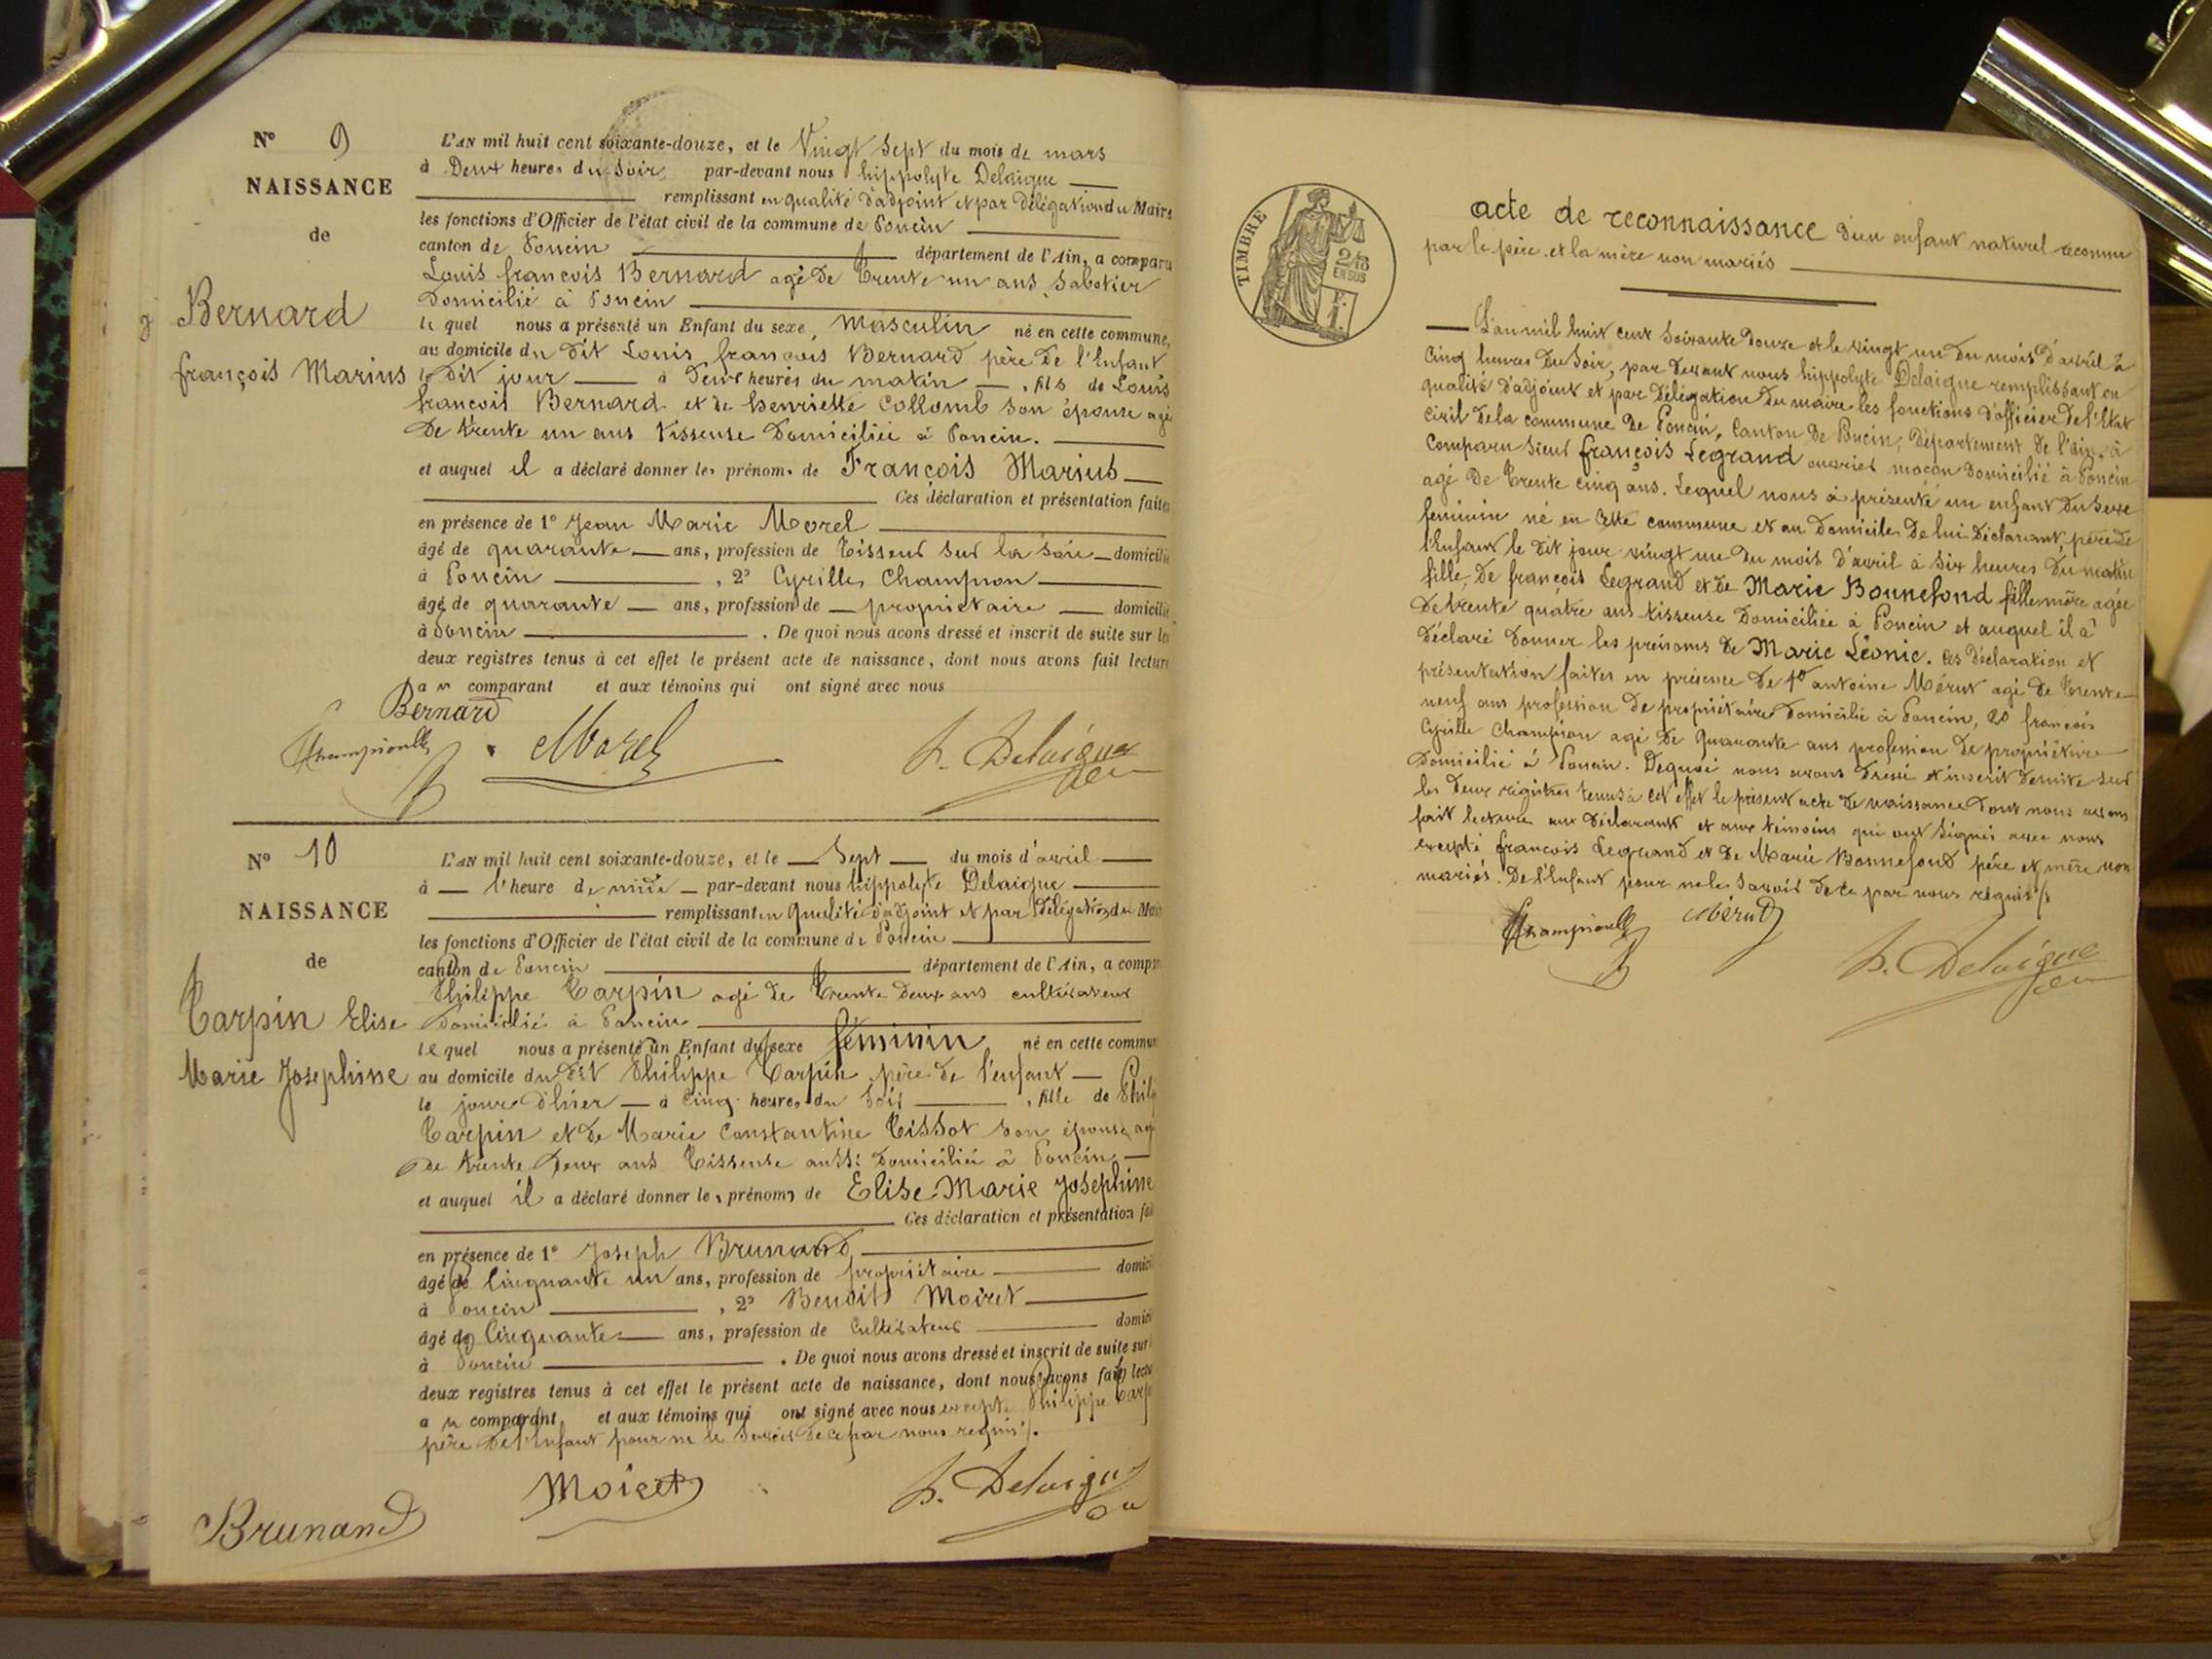 N° 9
NAISSANCE
de
Bernard
françois Marius
L'AN mil huit cent soixante-douze, et le Vingt Sept du mois de mars
à Deux heures du Soir par-devant nous hippolyte Delaigue
remplissant en qualité d'adjoint et par délégation du Maire
les fonctions d'Officier de l'état civil de la commune de Poncin
canton de Poncin département de l'Ain, a comparu
Louis françois Bernard agé de trente un ans, Sabotier
Domicilié à Poncin
le quel nous a présenté un Enfant du sexe masculin né en cette commune,
au domicile du dit Louis françois Bernard père de l'Enfant
le dit jour à deux heures du matin, fils de Louis
françois Bernard et de henriette Collomb son épouse agée
de trente un ans tisseuse Domiciliée à Poncin.
et auquel il a déclaré donner les prénoms de François Marius
Ces déclaration et présentation faites
en présence de 1° Jean Marie Morel
âgé de quarante ans, profession de tisseur sur la soie domicilié
à Poncin, 2° Cyrille Champion
âgé de quarante ans, profession de propriétaire domicilié
à Poncin. De quoi nous avons dressé et inscrit de suite sur les
deux registres tenus à cet effet le présent acte de naissance, dont nous avons fait lecture
au comparant et aux témoins qui ont signé avec nous
Bernard
Morel
h. Delaigue
N° 10
NAISSANCE
de
Carpin Elise
Marie Josephine
L'AN mil huit cent soixante-douze, et le Sept du mois d'avril
à l'heure de midi par-devant nous hippolyte Delaigue
remplissant en qualité d'adjoint et par Délégation du Mai
les fonctions d'Officier de l'état civil de la commune de Poncin
canton de Poncin département de l'Ain, a compa
Philippe Carpin agé de trente deux ans cultivateur
Domicilié à Poncin
le quel nous a présenté un Enfant du sexe féminin né en cette commun
au domicile du dit Philippe Carpin père de l'enfant
le jour d'hier à cinq heures du soir, fille de Phili
Carpin et de Marie Constantine Tissot son épouse ag
de trente deux ans Tisseuse aussi Domiciliée à Poncin
et auquel il a déclaré donner les prénoms de Elise Marie Josephine
Ces déclaration et présentation fai
en présence de 1° Joseph Brunand
âgé de Cinquante un ans, profession de propriétaire domici
à Poncin, 2° Benoit Moiret
âgé de Cinquante ans, profession de Cultivateur domici
à Poncin. De quoi nous avons dressé et inscrit de suite sur l
deux registres tenus à cet effet le présent acte de naissance, dont nous avons fait lectu
au comparant et aux témoins qui ont signé avec nous excepté Philippe Carp
père de l'Enfant pour ne le savoir de ce par nous requis/.
Moiret
h. Delaigue
Brunand
TIMBRE
EN SUS
acte de reconnaissance d'un enfant naturel reconnu
par le père et la mère non mariés
L'an mil huit cent soixante douze et le vingt un du mois d'avril à
Cinq heures du Soir, par devant nous hippolyte Delaigue remplissant en
qualité d'adjoint et par délégation du maire les fonctions d'officier de l'Etat
civil de la commune de Poncin, Canton de Poncin, Département de l'ain, à
comparu Sieur françois Legrand ouvrier maçon domicilié à Poncin
agé de trente cinq ans. Lequel nous à présenté un enfant du Sexe
feminin né en Cette commune et au Domicile de lui Déclarant, père de
l'Enfant le dit jour vingt un du mois d'avril à Six heures du matin
fille, de françois Legrand et de Marie Bonnefond fille mère agée
de trente quatre ans tisseuse Domiciliée à Poncin et auquel il à
déclaré donner les prénoms de Marie Léonie. Ces déclaration et
présentation faites en présence de 1° antoine Mérut agé de trente
neuf ans profession de propriétaire domicilié à Poncin, 2° françois
Cyrille Champion agé de quarante ans profession de propriétaire
Domicilié à Poncin. Dequoi nous avons dressé et inscrit de suite sur
les deux registres tenus à cet effet le présent acte de naissance dont nous avons
fait lecture aux déclarant et aux témoins qui ont Signés avec nous
excepté françois Legrand et de Marie Bonnefond père et mère non
mariés. De l'Enfant pour ne le Savoir de ce par nous requis/.
Mérut
h. Delaigue